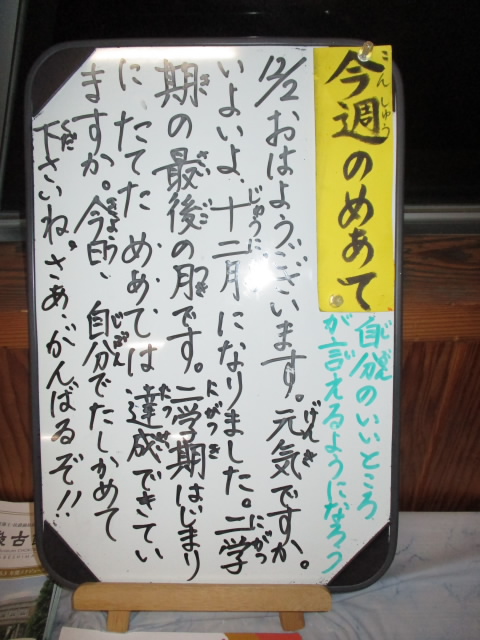 今週のめあて
自分のいいところ
が言えるようになろう
12/2 おはようございます。元気ですか。
いよいよ、十二月になりました。二学
期の最後の月です。二学期はじまり
にたてためあては達成できてい
ますか。自分でたしかめて
下さいね。さあ、がんばるぞ!!